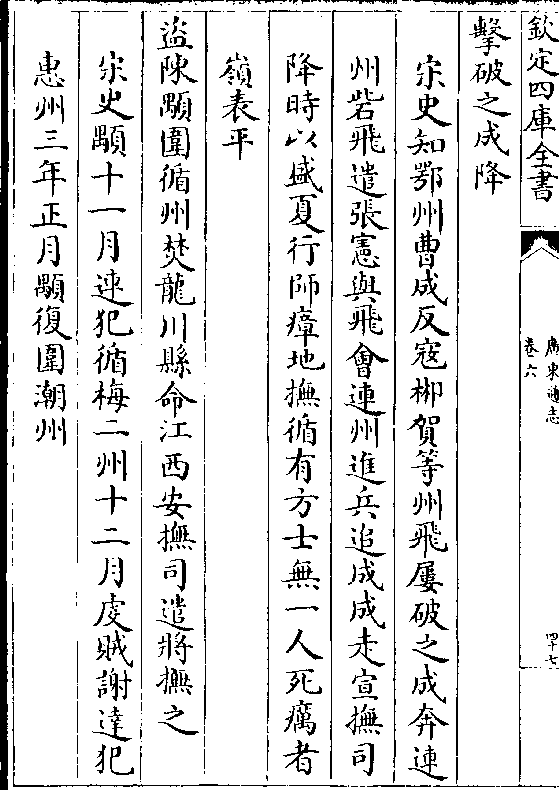 欽定四庫全書
廣東通志
卷六
四十七
擊破之成降
宋史知鄂州曹成反寇郴賀等州飛屢破之成奔連
州砦飛遣張憲與飛會連州進兵追成成走宣撫司
降時以盛夏行師瘴地撫循有方士無一人死癘者
嶺表平
盜陳顒圍循州焚龍川縣命江西安撫司遣將撫之
宋史顒十一月連犯循梅二州十二月䖍賊謝達犯
惠州三年正月顒復圍潮州